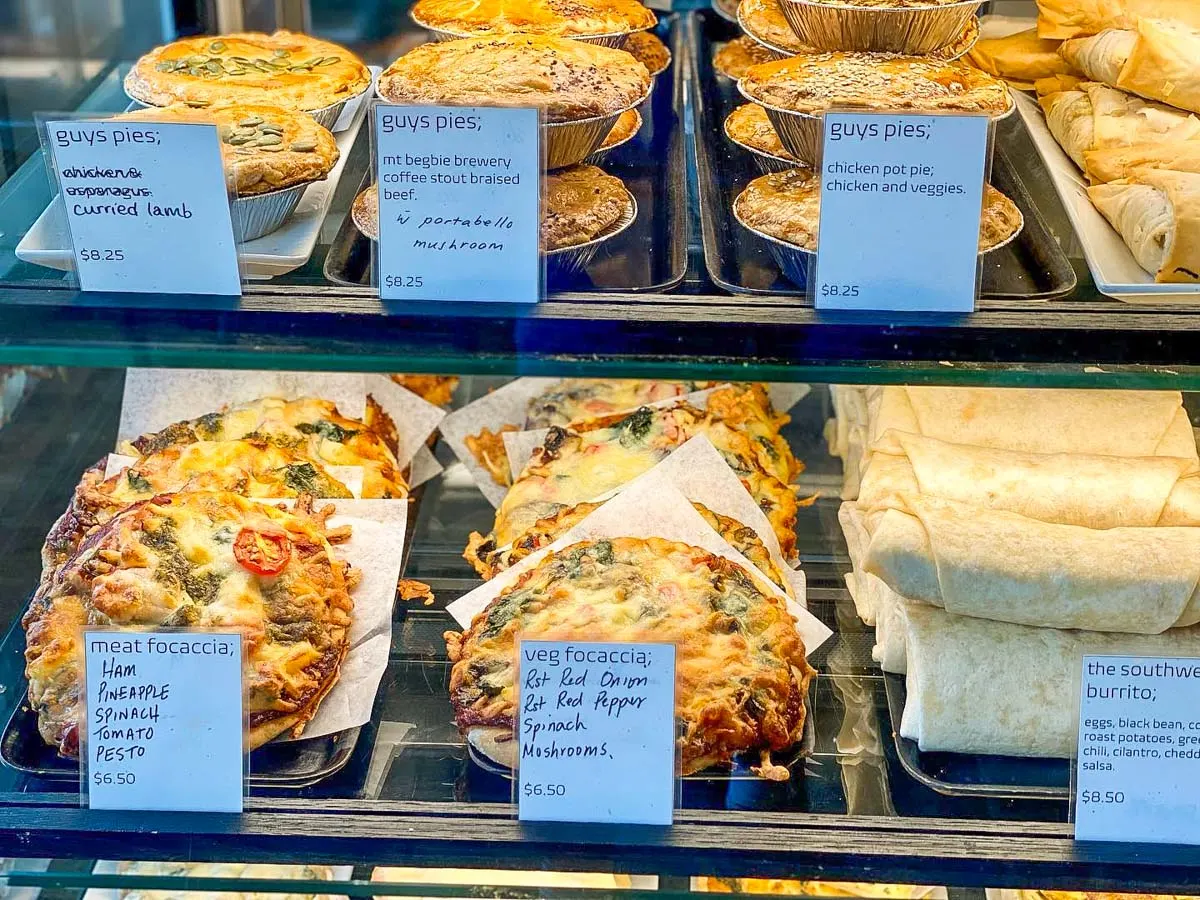 guys pies;
chicken &
asparagus.
curried lamb
$8.25
guys pies;
mt begbie brewery
coffee stout braised
beef.
w̄ portabello
mushroom
$8.25
guys pies;
chicken pot pie;
chicken and veggies.
$8.25
meat focaccia;
HAM
PINEAPPLE
SPINACH
TOMATO
PESTO
$6.50
veg focaccia;
Rst Red Onion
Rst Red Pepper
Spinach
Moshrooms.
$6.50
the southwe
burrito;
eggs, black bean, co
roast potatoes, gree
chili, cilantro, chedd
salsa.
$8.50